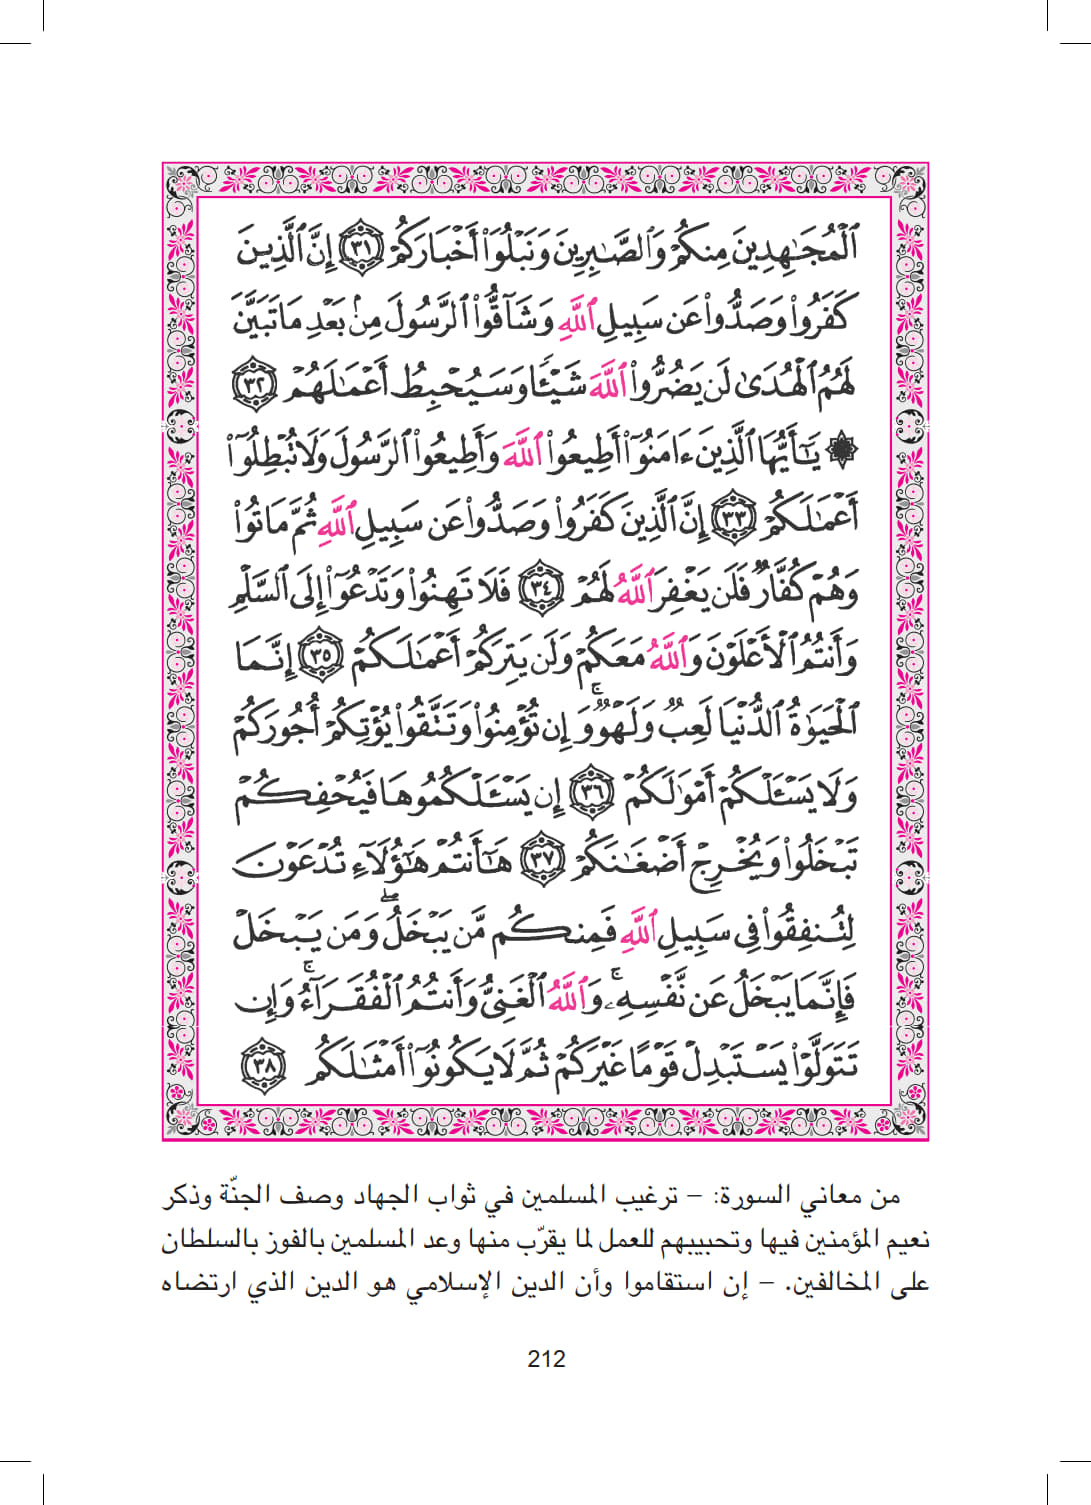 ٱلْمُجَٰهِدِينَ مِنكُمْ وَٱلصَّٰبِرِينَ وَنَبْلُوَا۟ أَخْبَارَكُمْ ٣١ إِنَّ ٱلَّذِينَ
كَفَرُوا۟ وَصَدُّوا۟ عَن سَبِيلِ ٱللَّهِ وَشَآقُّوا۟ ٱلرَّسُولَ مِنۢ بَعْدِ مَا تَبَيَّنَ
لَهُمُ ٱلْهُدَىٰ لَن يَضُرُّوا۟ ٱللَّهَ شَيْـًٔا وَسَيُحْبِطُ أَعْمَٰلَهُمْ ٣٢
۞ يَٰٓأَيُّهَا ٱلَّذِينَ ءَامَنُوٓا۟ أَطِيعُوا۟ ٱللَّهَ وَأَطِيعُوا۟ ٱلرَّسُولَ وَلَا تُبْطِلُوٓا۟
أَعْمَٰلَكُمْ ٣٣ إِنَّ ٱلَّذِينَ كَفَرُوا۟ وَصَدُّوا۟ عَن سَبِيلِ ٱللَّهِ ثُمَّ مَاتُوا۟
وَهُمْ كُفَّارٌ فَلَن يَغْفِرَ ٱللَّهُ لَهُمْ ٣٤ فَلَا تَهِنُوا۟ وَتَدْعُوٓا۟ إِلَى ٱلسَّلْمِ
وَأَنتُمُ ٱلْأَعْلَوْنَ وَٱللَّهُ مَعَكُمْ وَلَن يَتِرَكُمْ أَعْمَٰلَكُمْ ٣٥ إِنَّمَا
ٱلْحَيَوٰةُ ٱلدُّنْيَا لَعِبٌ وَلَهْوٌ ۚ وَإِن تُؤْمِنُوا۟ وَتَتَّقُوا۟ يُؤْتِكُمْ أُجُورَكُمْ
وَلَا يَسْـَٔلْكُمْ أَمْوَٰلَكُمْ ٣٦ إِن يَسْـَٔلْكُمُوهَا فَيُحْفِكُمْ
تَبْخَلُوا۟ وَيُخْرِجْ أَضْغَٰنَكُمْ ٣٧ هَٰٓأَنتُمْ هَٰٓؤُلَآءِ تُدْعَوْنَ
لِتُنفِقُوا۟ فِى سَبِيلِ ٱللَّهِ فَمِنكُم مَّن يَبْخَلُ ۖ وَمَن يَبْخَلْ
فَإِنَّمَا يَبْخَلُ عَن نَّفْسِهِۦ ۚ وَٱللَّهُ ٱلْغَنِىُّ وَأَنتُمُ ٱلْفُقَرَآءُ ۚ وَإِن
تَتَوَلَّوْا۟ يَسْتَبْدِلْ قَوْمًا غَيْرَكُمْ ثُمَّ لَا يَكُونُوٓا۟ أَمْثَٰلَكُم ٣٨
من معاني السورة: – ترغيب المسلمين في ثواب الجهاد وصف الجنّة وذكر
نعيم المؤمنين فيها وتحبيبهم للعمل لما يقرّب منها وعد المسلمين بالفوز بالسلطان
على المخالفين. – إن استقاموا وأن الدين الإسلامي هو الدين الذي ارتضاه
212